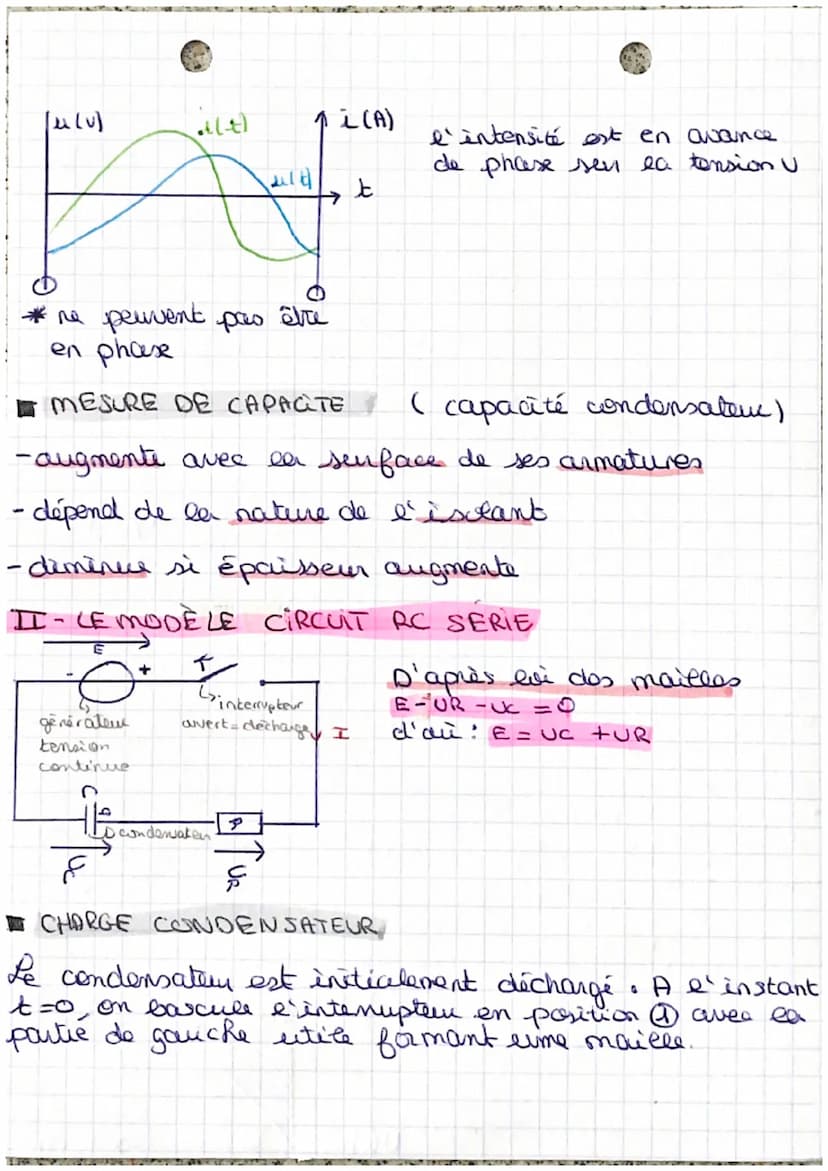 u(v)
i(t)
i(A)
u(t)
t
l'intensité est en avance
de phase sur la tension U
* ne peuvent pas être
en phase
■ MESURE DE CAPACITE ( capacité condensateur)
- augmente avec la surface de ses armatures
- dépend de la nature de l'isolant
- diminue si épaisseur augmente
II - LE MODÈLE CIRCUIT RC SÉRIE
E
- +
K
interrupteur
ouvert = décharge
I
générateur
tension
continue
condensateur
D'après loi des mailles
E - UR - UC = 0
d'où : E = UC + UR
■ CHARGE CONDENSATEUR
Le condensateur est initialement déchargé. A l'instant
t=0, on bascule l'interrupteur en position ① avec la
partie de gauche utile formant une maille.